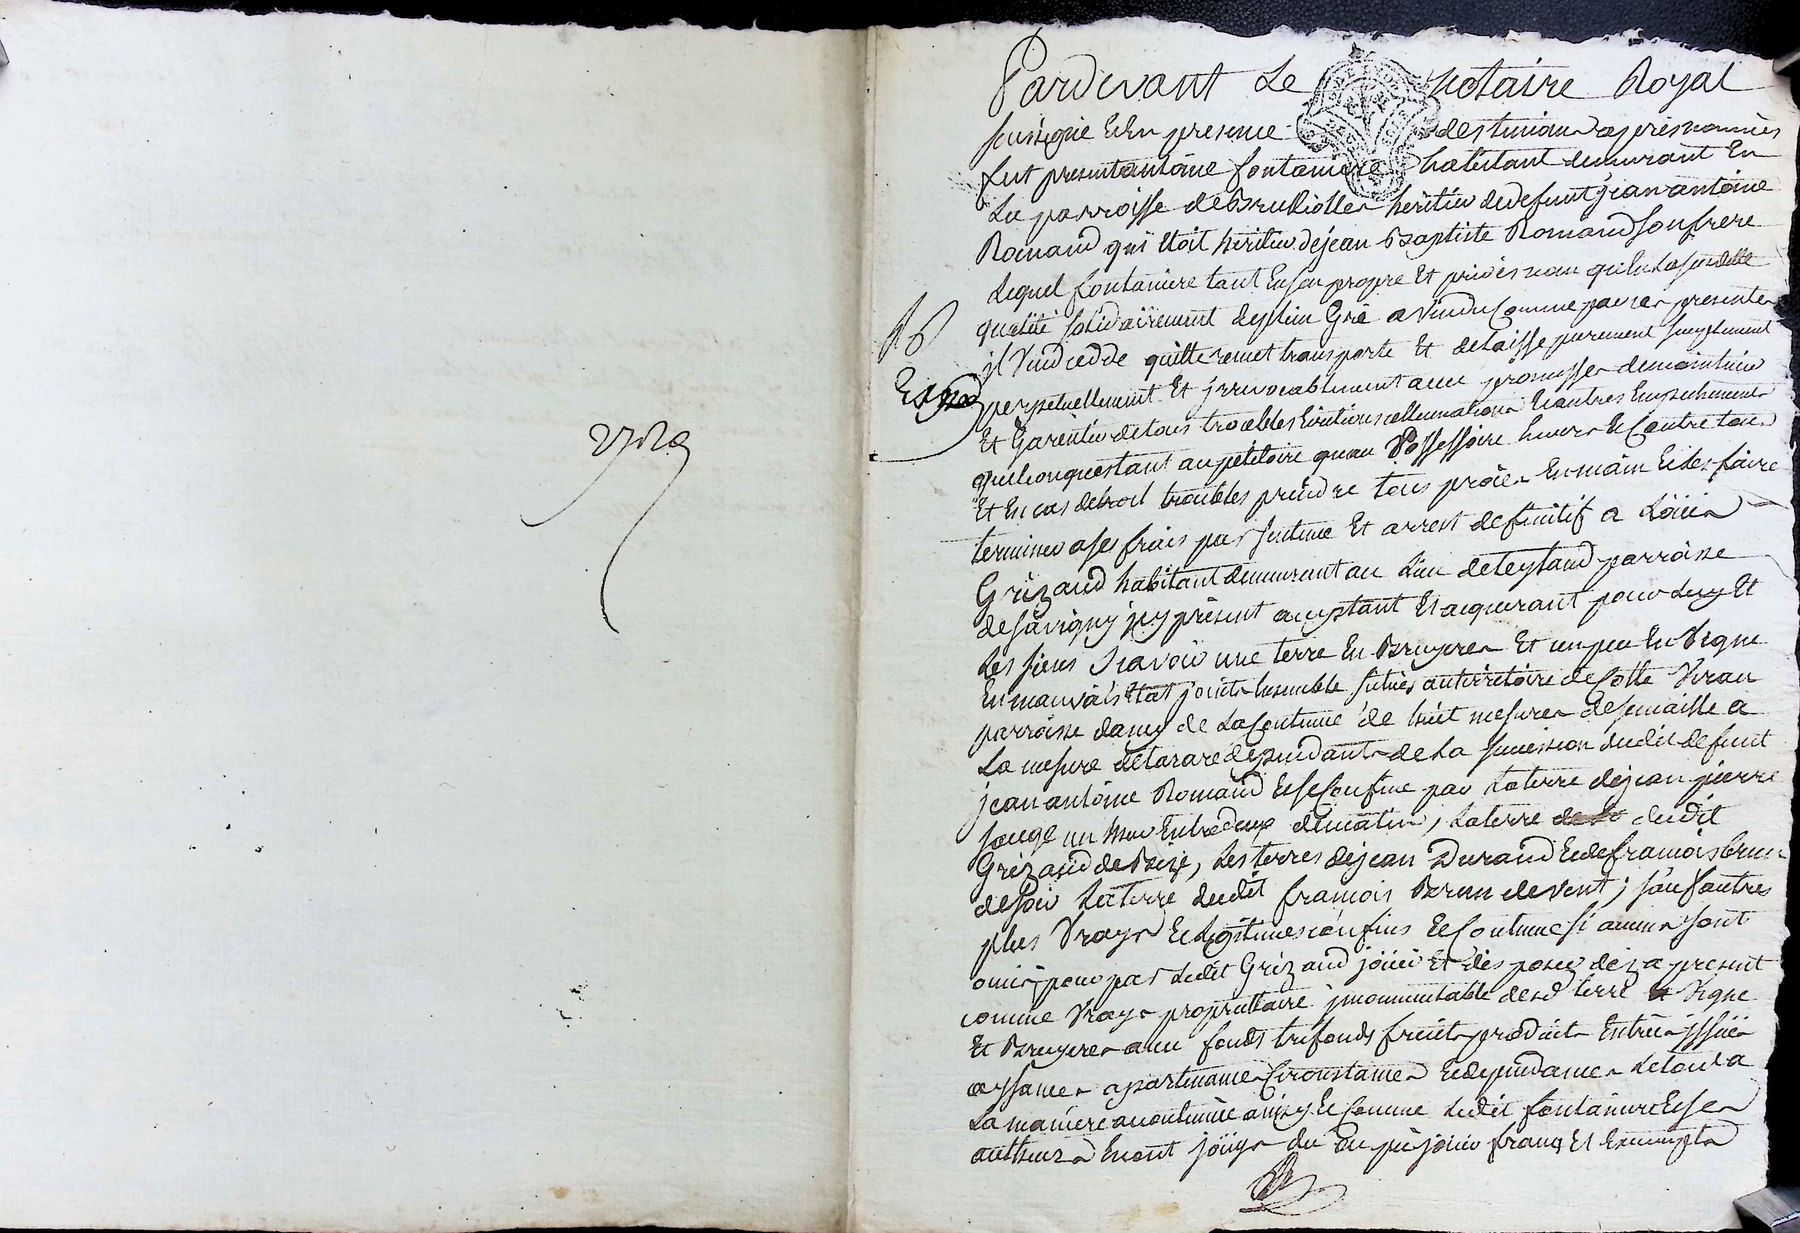 Pardevant Le notaire Royal
soussigné Et En presence des temoins apres nommés
fut present antoine fontaniere habitant demeurant En
La parroisse de Brullioles heritier de defunt jean antoine
Romand qui Etoit heritier de jean Baptiste Romand son frere
Lequel fontaniere tant En son propre Et privés nom qu'En La susditte
qualité solidairement de plein Gré a vendu Comme par ces presentes
jl Vend cedde quitte remet transporte Et delaisse purement simplement
perpetuellement Et jrrevocablement avec promesse de maintenir
Et Garentir de tous troubles Evictions Et autres Empechements
quelconques tant au petitoire quau Possessoire Envers Et Contre tous
Et En cas de troubles prendre tous procès En main Et les faire
terminer a ses frais par sentence Et arrest definitif a Loüis
Grizaud habitant demeurant au Lieu de parroisse
de savigny jcy present acceptant Et acquerant pour Luy Et
Les siens sçavoir une terre En Bruyeres Et un peu En Vigne
En mauvais Etat joints Ensemble situés au territoire de Cotte
parroisse dancy de La Contenue de huit mesures de semaille a
La mesure de tarare dependants de La succession dudit defunt
jean antoine Romand Et se Confine par La terre de jean pierre
un mur Entredeux de matin, La terre dudit
Grizaud de Bize, Les terres de jean Durand Et de francois Brun
de soir La terre dudit francois Brun de vent; sauf autres
plus Vrays Et Legitimes confins Et Contenue si aucuns sont
omis, pour par Ledit Grizaud jöuir Et disposer dez a present
comme Vrays proprietaire jncommutable desd terre Vigne
Et Bruyeres avec fonds trefonds fruits produits Entrées jssües
aysances apartenances Circonstances Et dependances Le tout a
La maniere accoutumée Et Comme Ledit fontaniere Et ses
autheurs En ont jöuys du ou pû jöuir francq Et Exempts